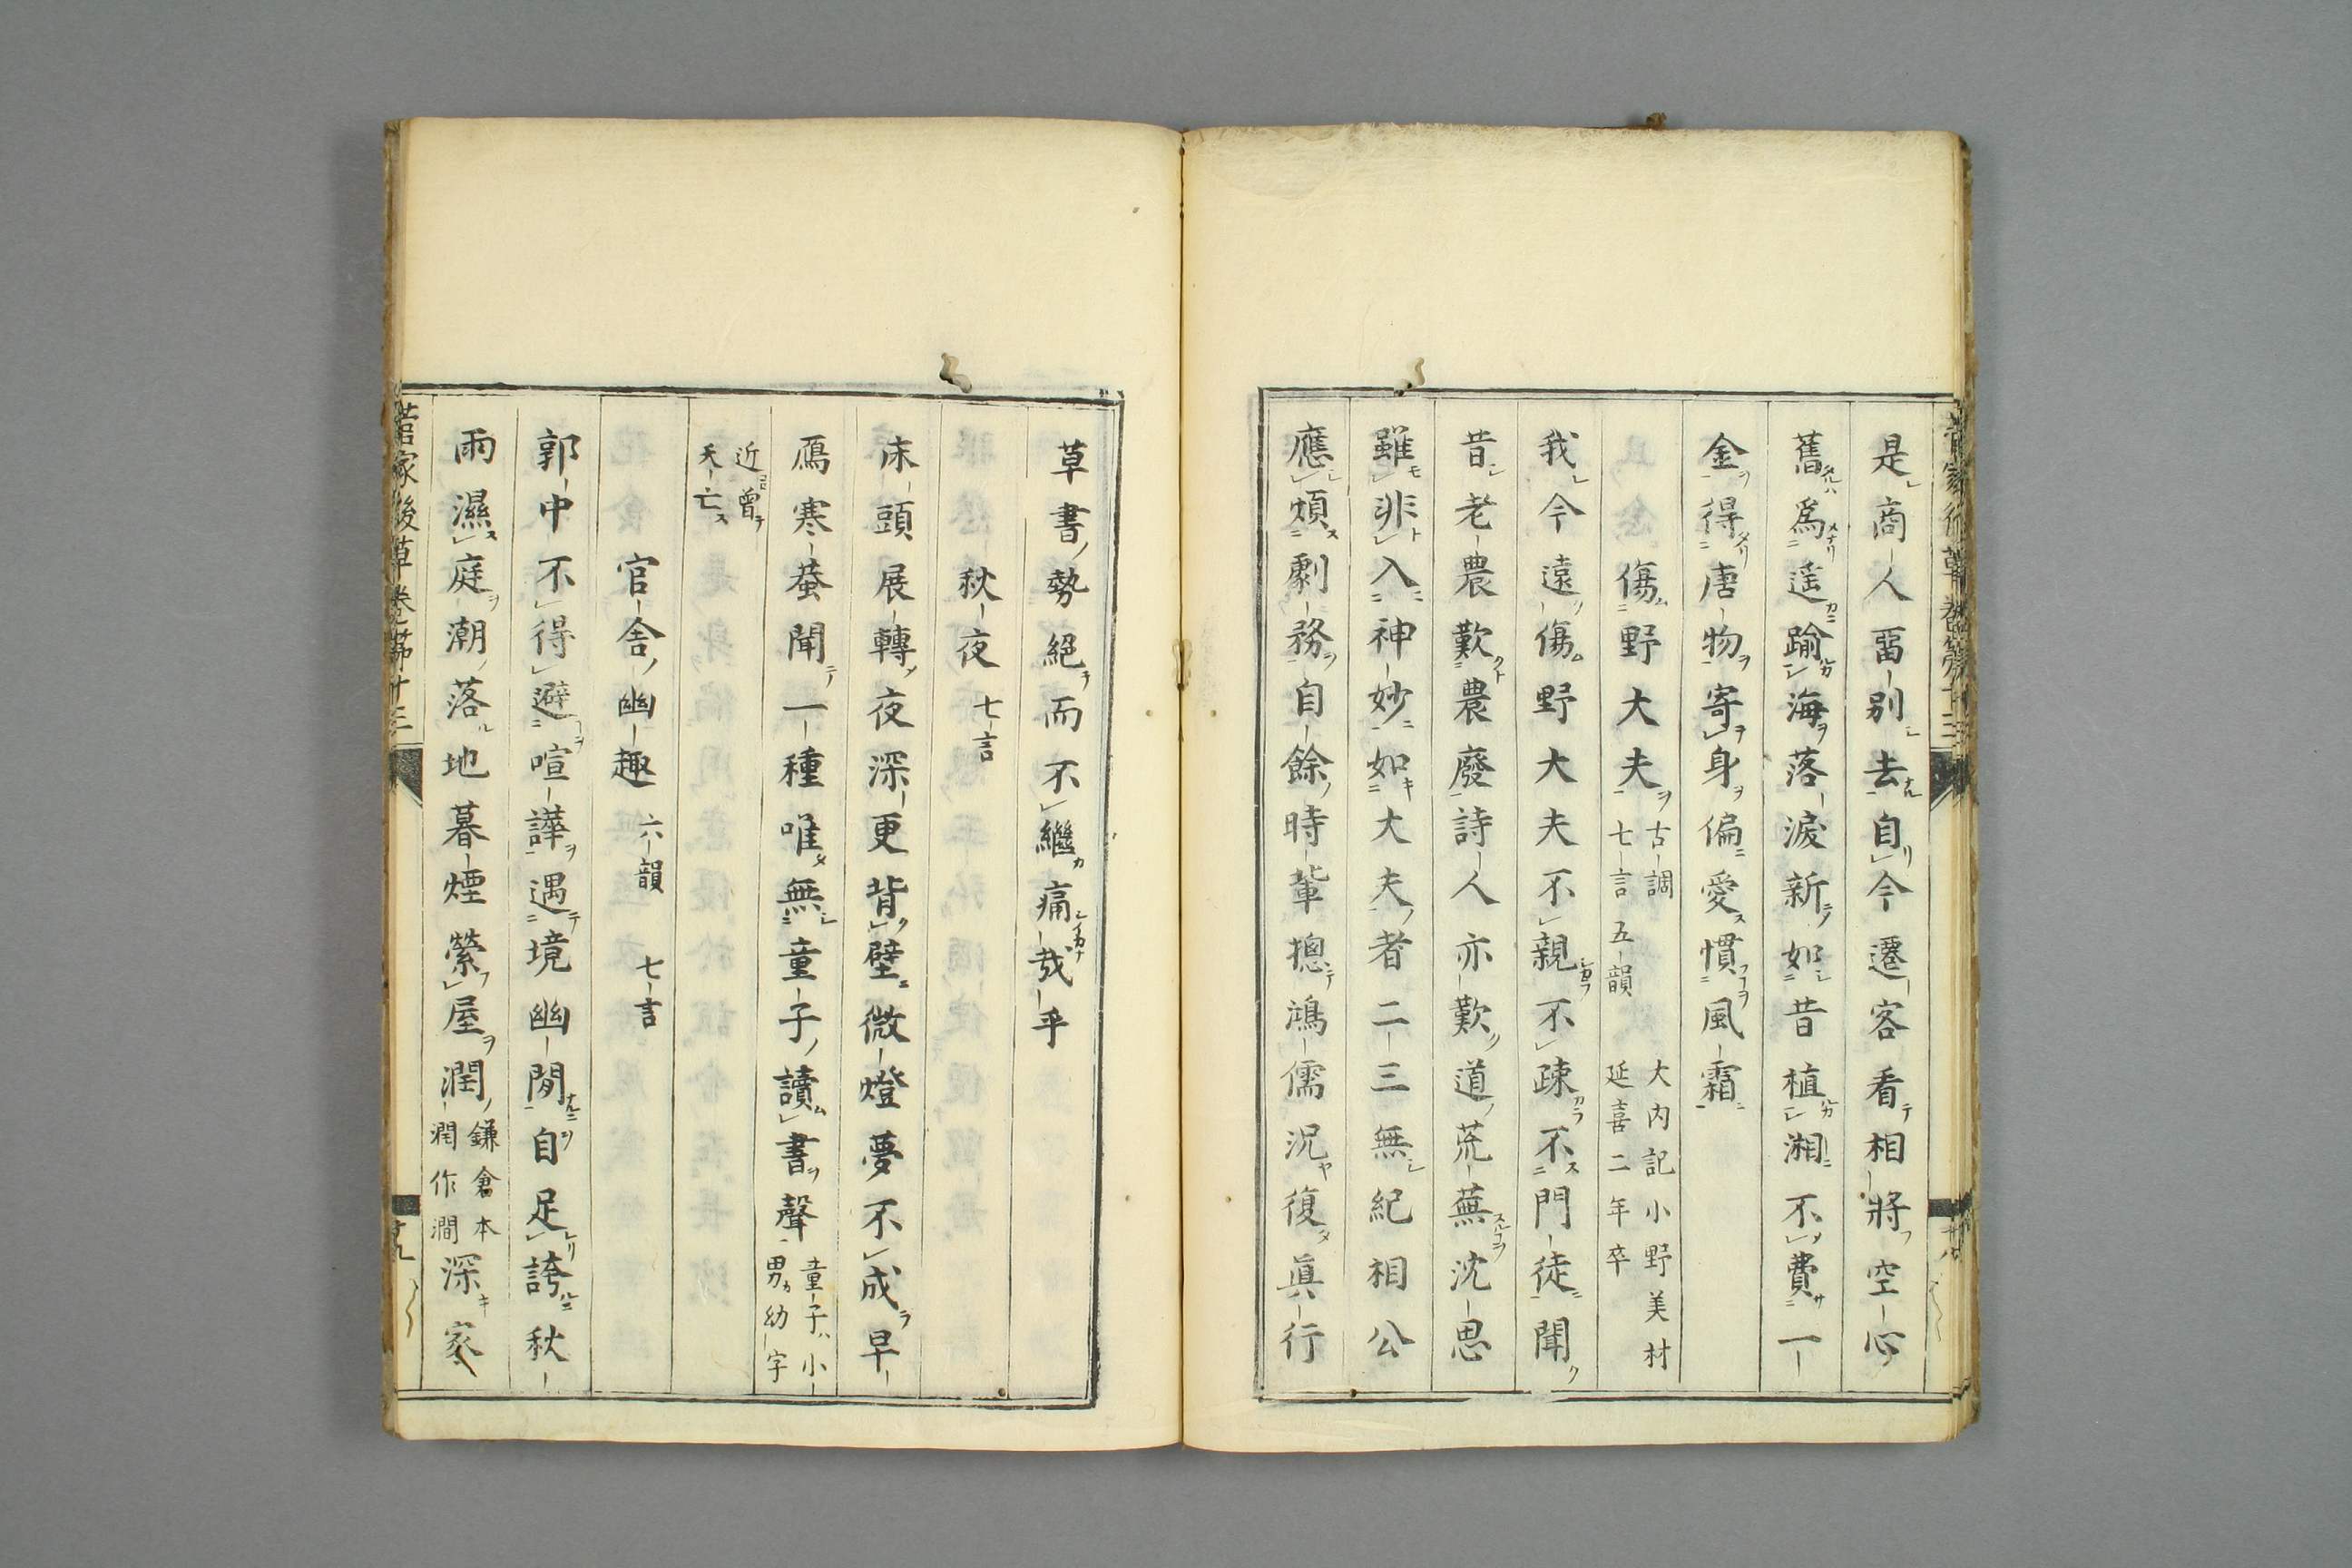 是商人畱別去自今遷客看相將空心
舊爲遥踰海落淚新如昔植湘不費一
金得唐物寄身偏愛慣風霜
傷野大夫 古調七言五韻 大内記小野美材延喜二年卒
我今遠傷野大夫不親不疎不門徒聞
昔老農歎農廢詩人亦歎道荒蕪沈思
雖非入神妙如大夫者二三無紀相公
應煩劇務自餘時輩摠鴻儒況復眞行
草書勢絕而不繼痛哉乎
秋夜 七言
床頭展轉夜深更背壁微燈夢不成早
鴈寒蛬聞一種唯無童子讀書聲 童子ハ小男幼字
近曾夭亡
官舎幽趣 六韻 七言
郭中不得避喧譁遇境幽閒自足誇秋
雨濕庭潮落地暮煙縈屋潤 鎌倉本潤作澗 深家
菅家後草 卷第十三